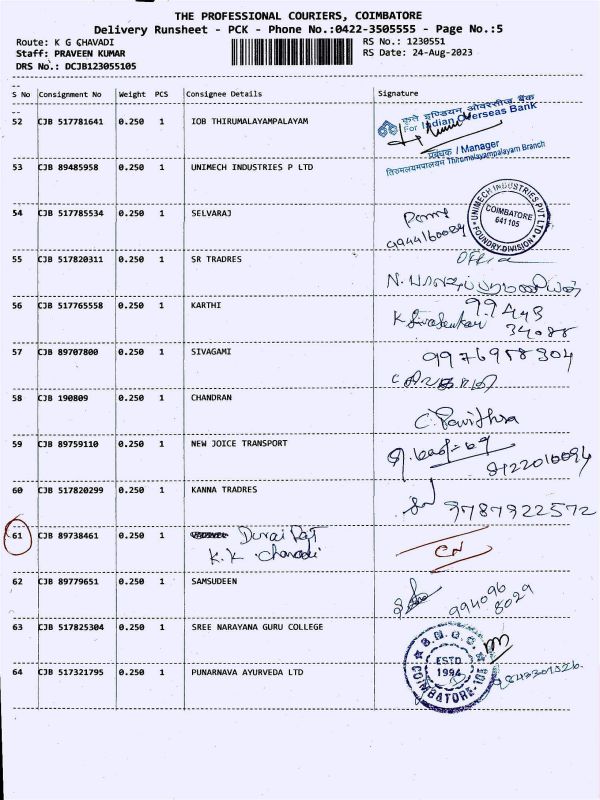 THE PROFESSIONAL COURIERS, COIMBATORE
Delivery Runsheet - PCK - Phone No.:0422-3505555 - Page No.:5
Route: K G CHAVADI RS No.: 1230551
Staff: PRAVEEN KUMAR RS Date: 24-Aug-2023
DRS No.: DCJB123055105
S No Consignment No Weight PCS Consignee Details Signature
52 CJB 517781641 0.250 1 IOB THIRUMALAYAMPALAYAM
कृते इण्डियन ओवरसीज बैंक
For Indian Overseas Bank
प्रबंधक / Manager
तिरुमलयमपालयम Thirumalayampalayam Branch
53 CJB 89485958 0.250 1 UNIMECH INDUSTRIES P LTD
UNIMECH INDUSTRIES PVT LTD
COIMBATORE
641 105
FOUNDRY DIVISION
54 CJB 517785534 0.250 1 SELVARAJ
55 CJB 517820311 0.250 1 SR TRADRES
56 CJB 517765558 0.250 1 KARTHI
99443
K Sivasankar 34088
57 CJB 89707800 0.250 1 SIVAGAMI 9976988304
58 CJB 190809 0.250 1 CHANDRAN C. Pavithra
59 CJB 89759110 0.250 1 NEW JOICE TRANSPORT
8122010094
60 CJB 517820299 0.250 1 KANNA TRADRES 9787922572
61 CJB 89738461 0.250 1 Durai Raj CN
K.K. Chavadi
62 CJB 89779651 0.250 1 SAMSUDEEN 994096
8029
63 CJB 517825304 0.250 1 SREE NARAYANA GURU COLLEGE
S.N.G.C.
ESTD
1994
COIMBATORE-105
64 CJB 517321795 0.250 1 PUNARNAVA AYURVEDA LTD